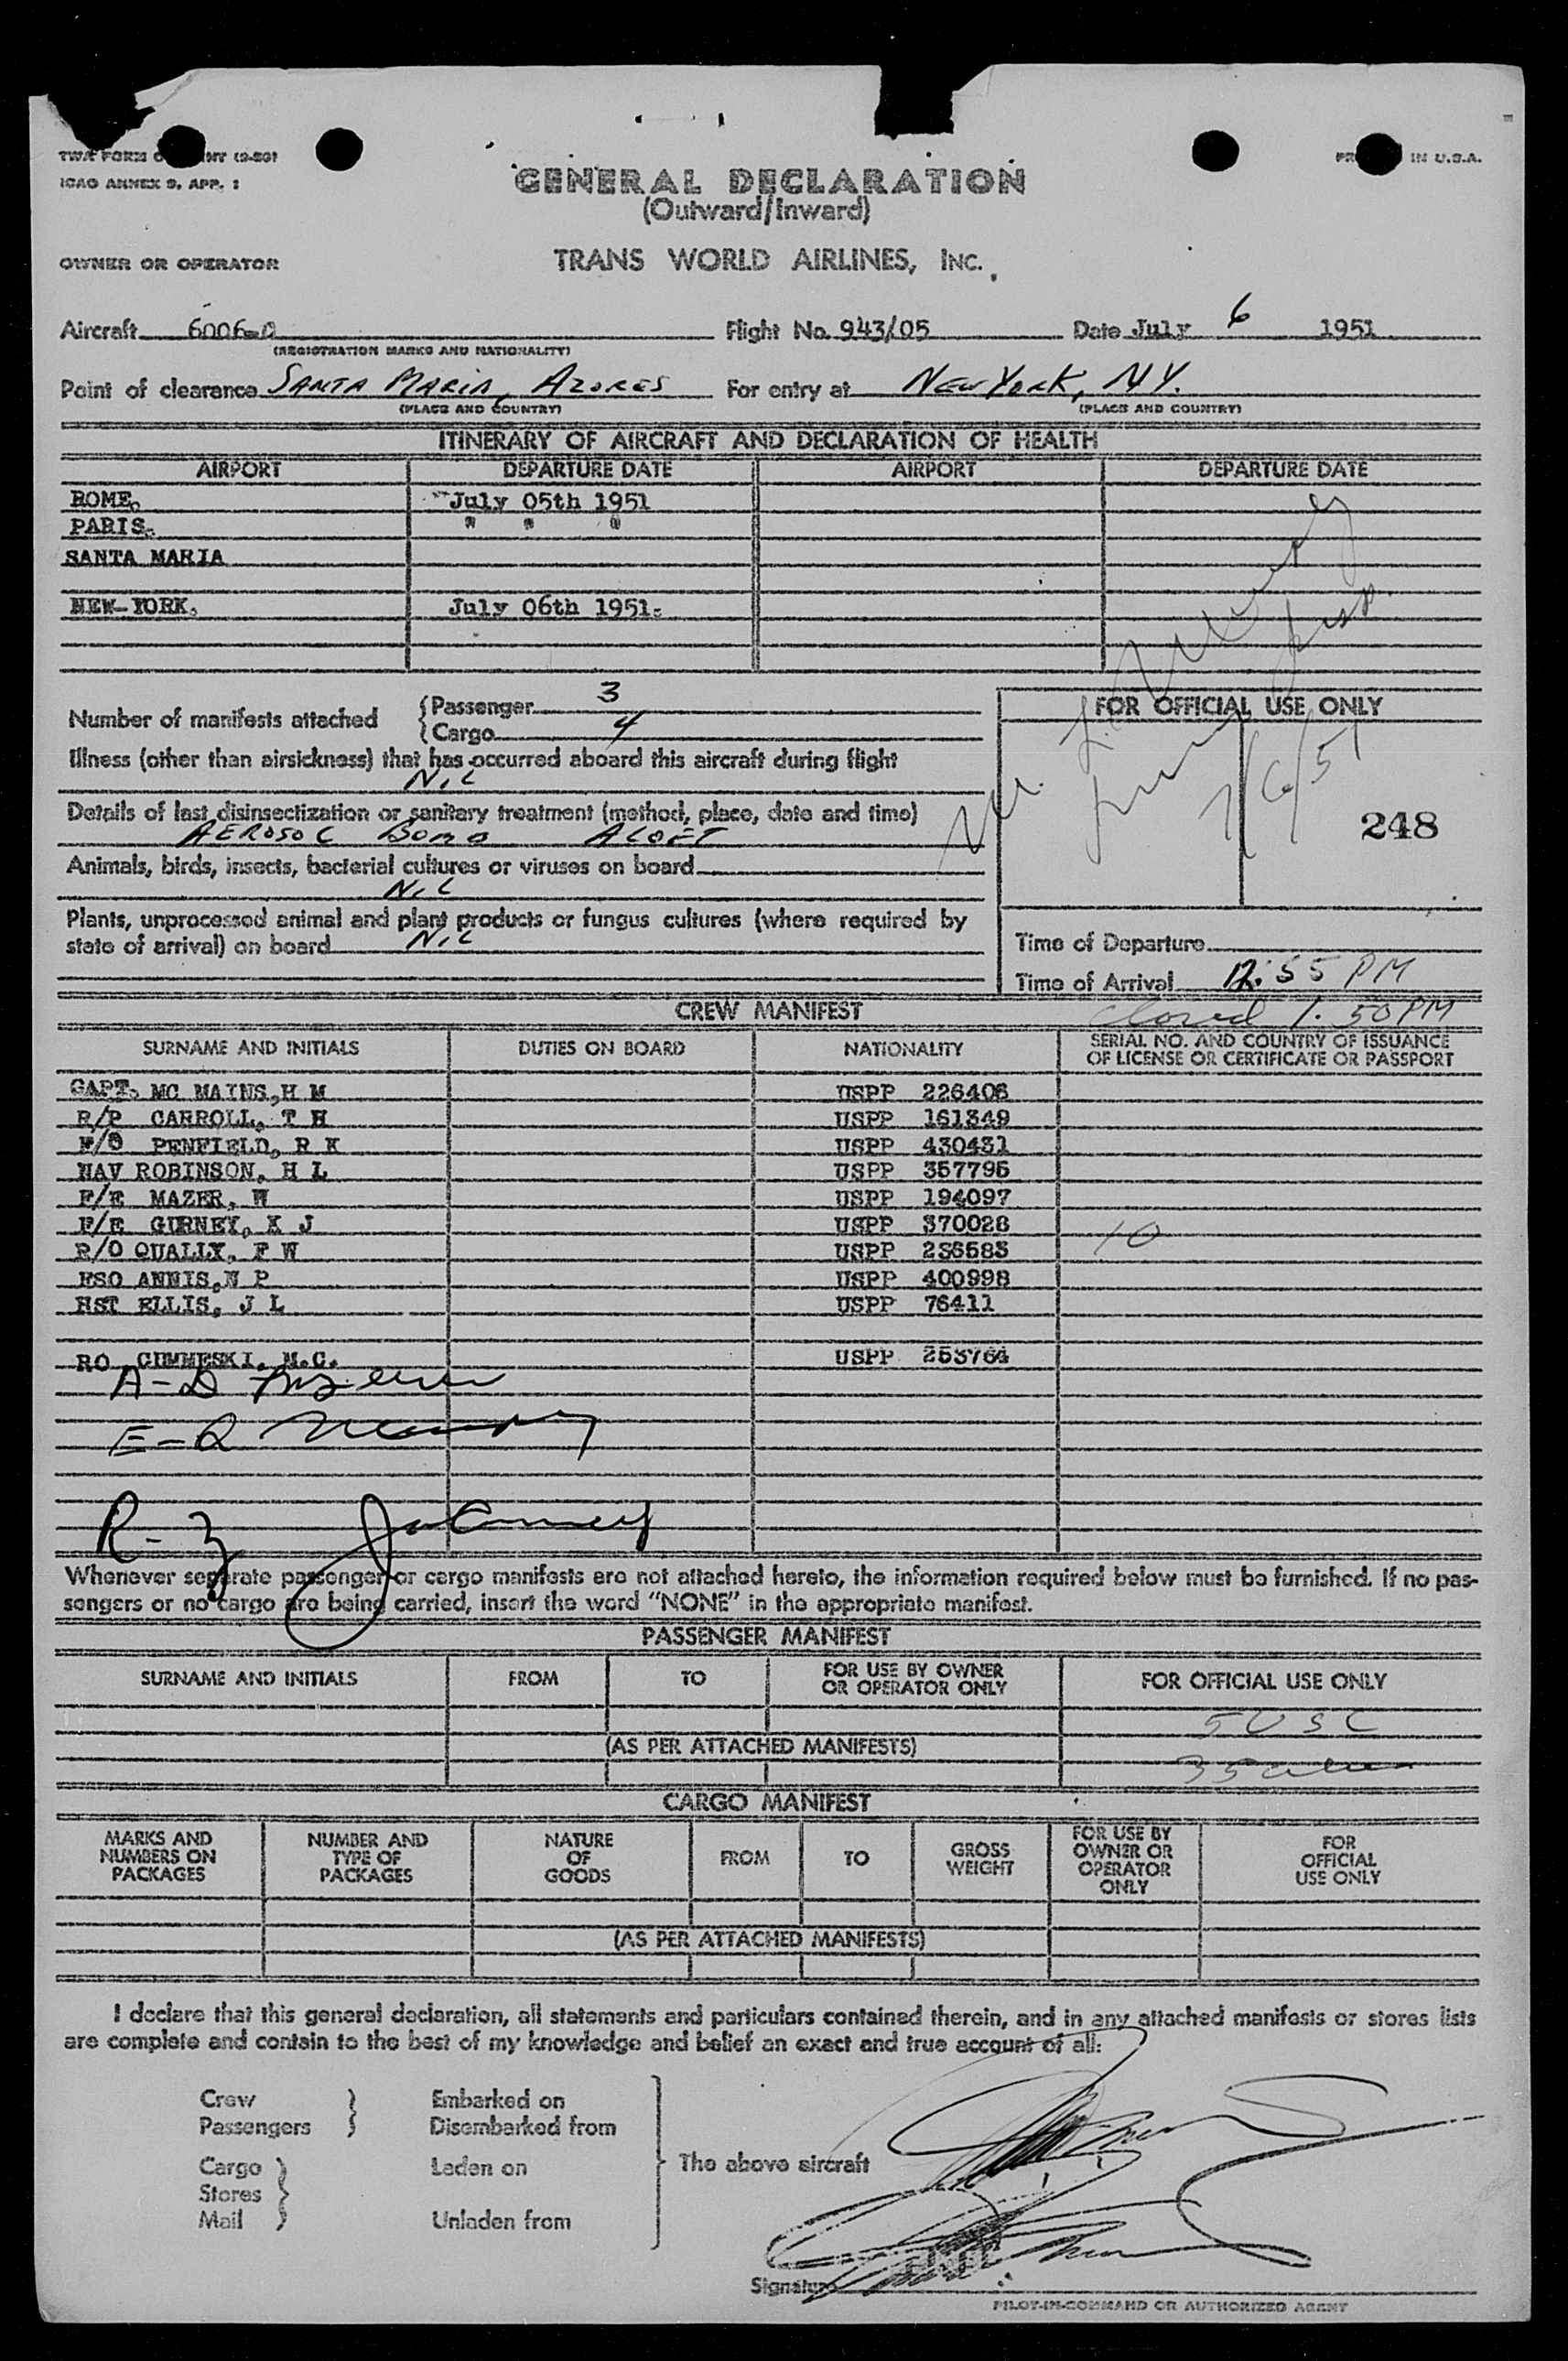 ICAO ANNEX 9, APP. 1
IN U.S.A.
GENERAL DECLARATION
(Outward/Inward)
OWNER OR OPERATOR
TRANS WORLD AIRLINES, INC.
Aircraft 6006 Flight No. 943/05 Date July 6 1951
(REGISTRATION MARKS AND NATIONALITY)
Point of clearance SANTA MARIA, AZORES For entry at NEW YORK, NY.
(PLACE AND COUNTRY) (PLACE AND COUNTRY)
ITINERARY OF AIRCRAFT AND DECLARATION OF HEALTH
AIRPORT DEPARTURE DATE AIRPORT DEPARTURE DATE
ROME. July 05th 1951
PARIS. " " "
SANTA MARIA
NEW-YORK. July 06th 1951.
Number of manifests attached { Passenger 3
{ Cargo 4
FOR OFFICIAL USE ONLY
Illness (other than airsickness) that has occurred aboard this aircraft during flight
NIL
7/6/51
Details of last disinsectization or sanitary treatment (method, place, date and time)
AEROSOL BOMB ALOFT
248
Animals, birds, insects, bacterial cultures or viruses on board
NIL
Plants, unprocessed animal and plant products or fungus cultures (where required by
state of arrival) on board NIL
Time of Departure
Time of Arrival 12:55 PM
Closed 1.50 PM
CREW MANIFEST
SURNAME AND INITIALS DUTIES ON BOARD NATIONALITY SERIAL NO. AND COUNTRY OF ISSUANCE
OF LICENSE OR CERTIFICATE OR PASSPORT
CAPT. MC MAINS,H M USPP 226406
R/P CARROLL, T H USPP 161349
F/O PENFIELD, R K USPP 430431
NAV ROBINSON, H L USPP 357795
F/E MAZER, W USPP 194097
F/E GURNEY, K J USPP 370028
10
R/O QUALLY, F W USPP 236583
FSO ANNIS,N P USPP 400998
HST ELLIS, J L USPP 76411
RO M.C. USPP 253764
A-D
E-Q
R-Z
Whenever separate passenger or cargo manifests are not attached hereto, the information required below must be furnished. If no pas-
sengers or no cargo are being carried, insert the word "NONE" in the appropriate manifest.
PASSENGER MANIFEST
SURNAME AND INITIALS FROM TO FOR USE BY OWNER
OR OPERATOR ONLY FOR OFFICIAL USE ONLY
5 USC
(AS PER ATTACHED MANIFESTS)
35
CARGO MANIFEST
MARKS AND
NUMBERS ON
PACKAGES
NUMBER AND
TYPE OF
PACKAGES
NATURE
OF
GOODS
FROM
TO
GROSS
WEIGHT
FOR USE BY
OWNER OR
OPERATOR
ONLY
FOR
OFFICIAL
USE ONLY
(AS PER ATTACHED MANIFESTS)
I declare that this general declaration, all statements and particulars contained therein, and in any attached manifests or stores lists
are complete and contain to the best of my knowledge and belief an exact and true account of all:
Crew Embarked on
Passengers Disembarked from
The above aircraft
Cargo Laden on
Stores
Mail Unladen from
Signature
PILOT-IN-COMMAND OR AUTHORIZED AGENT